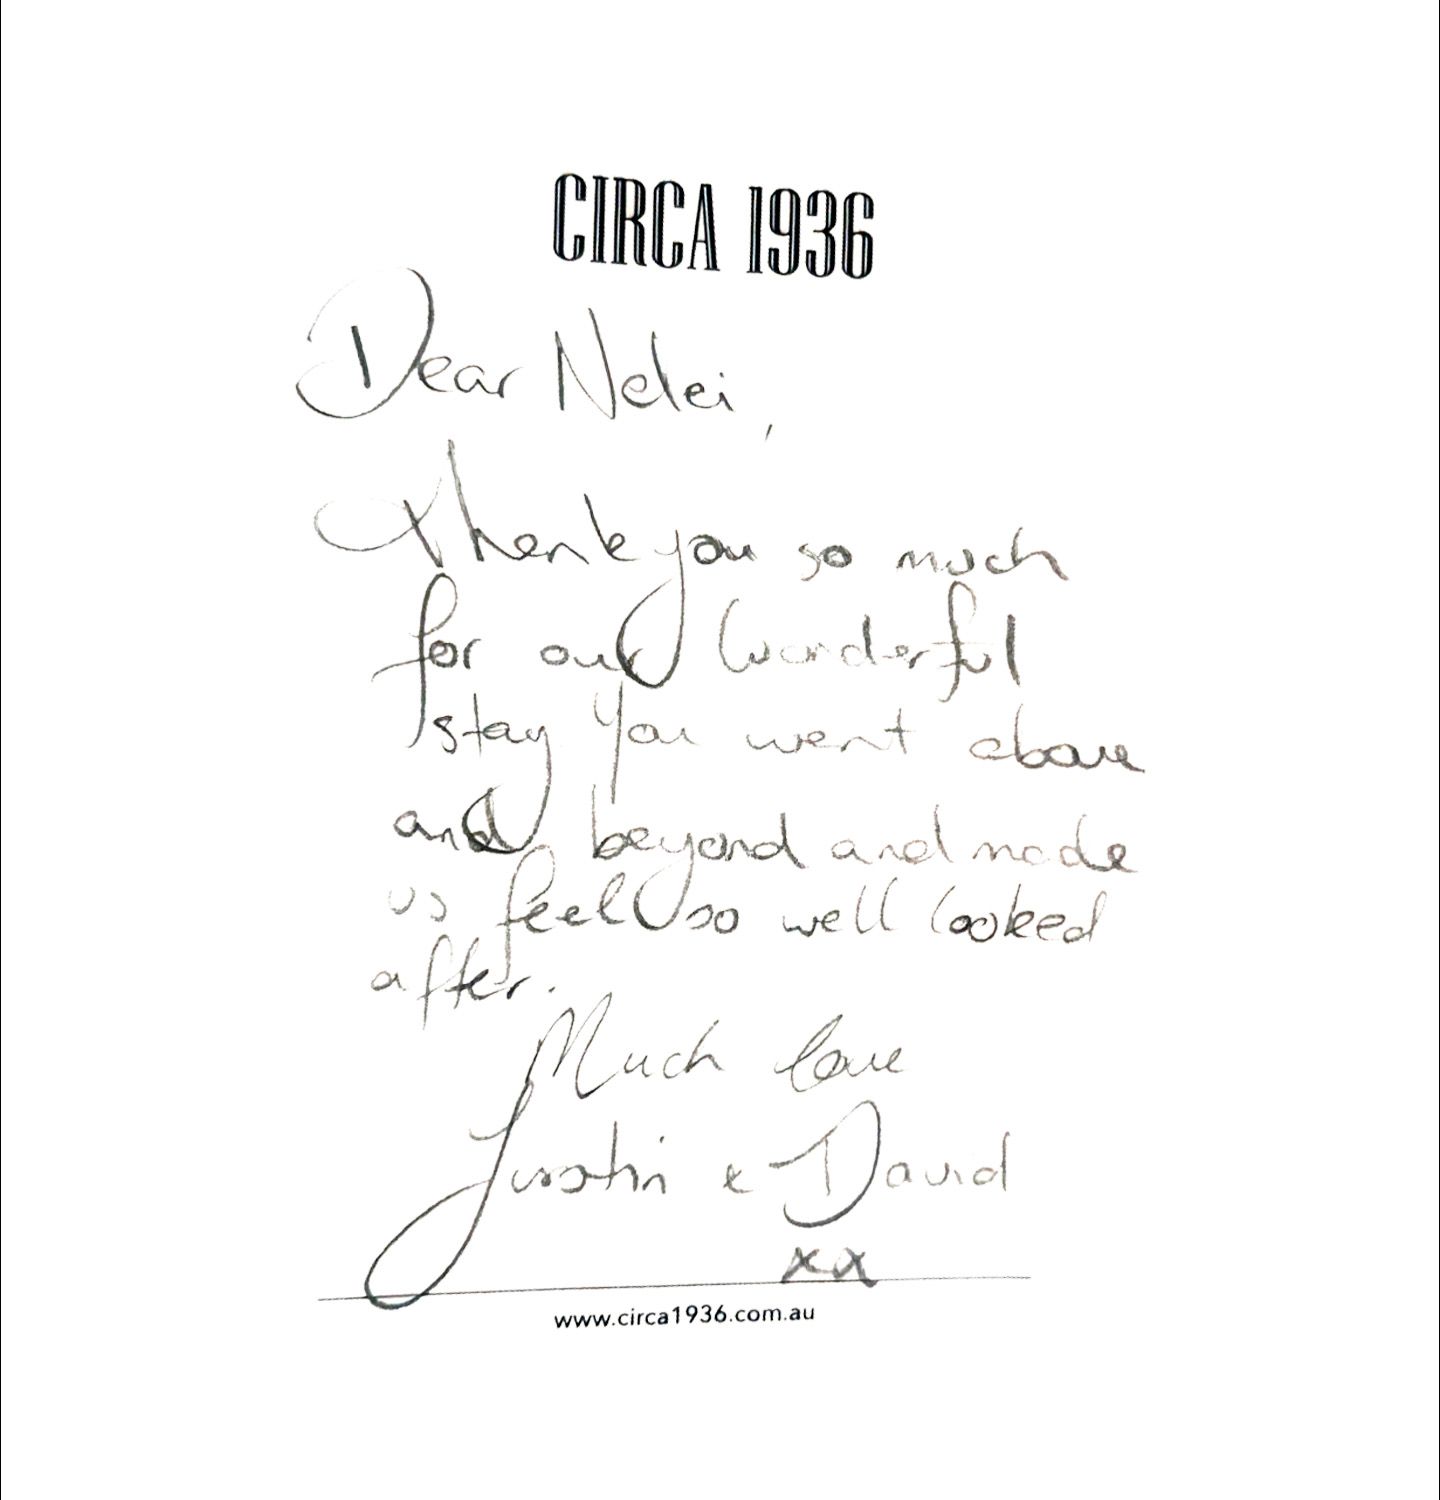 CIRCA 1936
Dear Nelei,
Thank you so much
for our wonderful
stay you went above
and beyond and made
us feel so well looked
after.
Much love
Justin & David
xx
www.circa1936.com.au